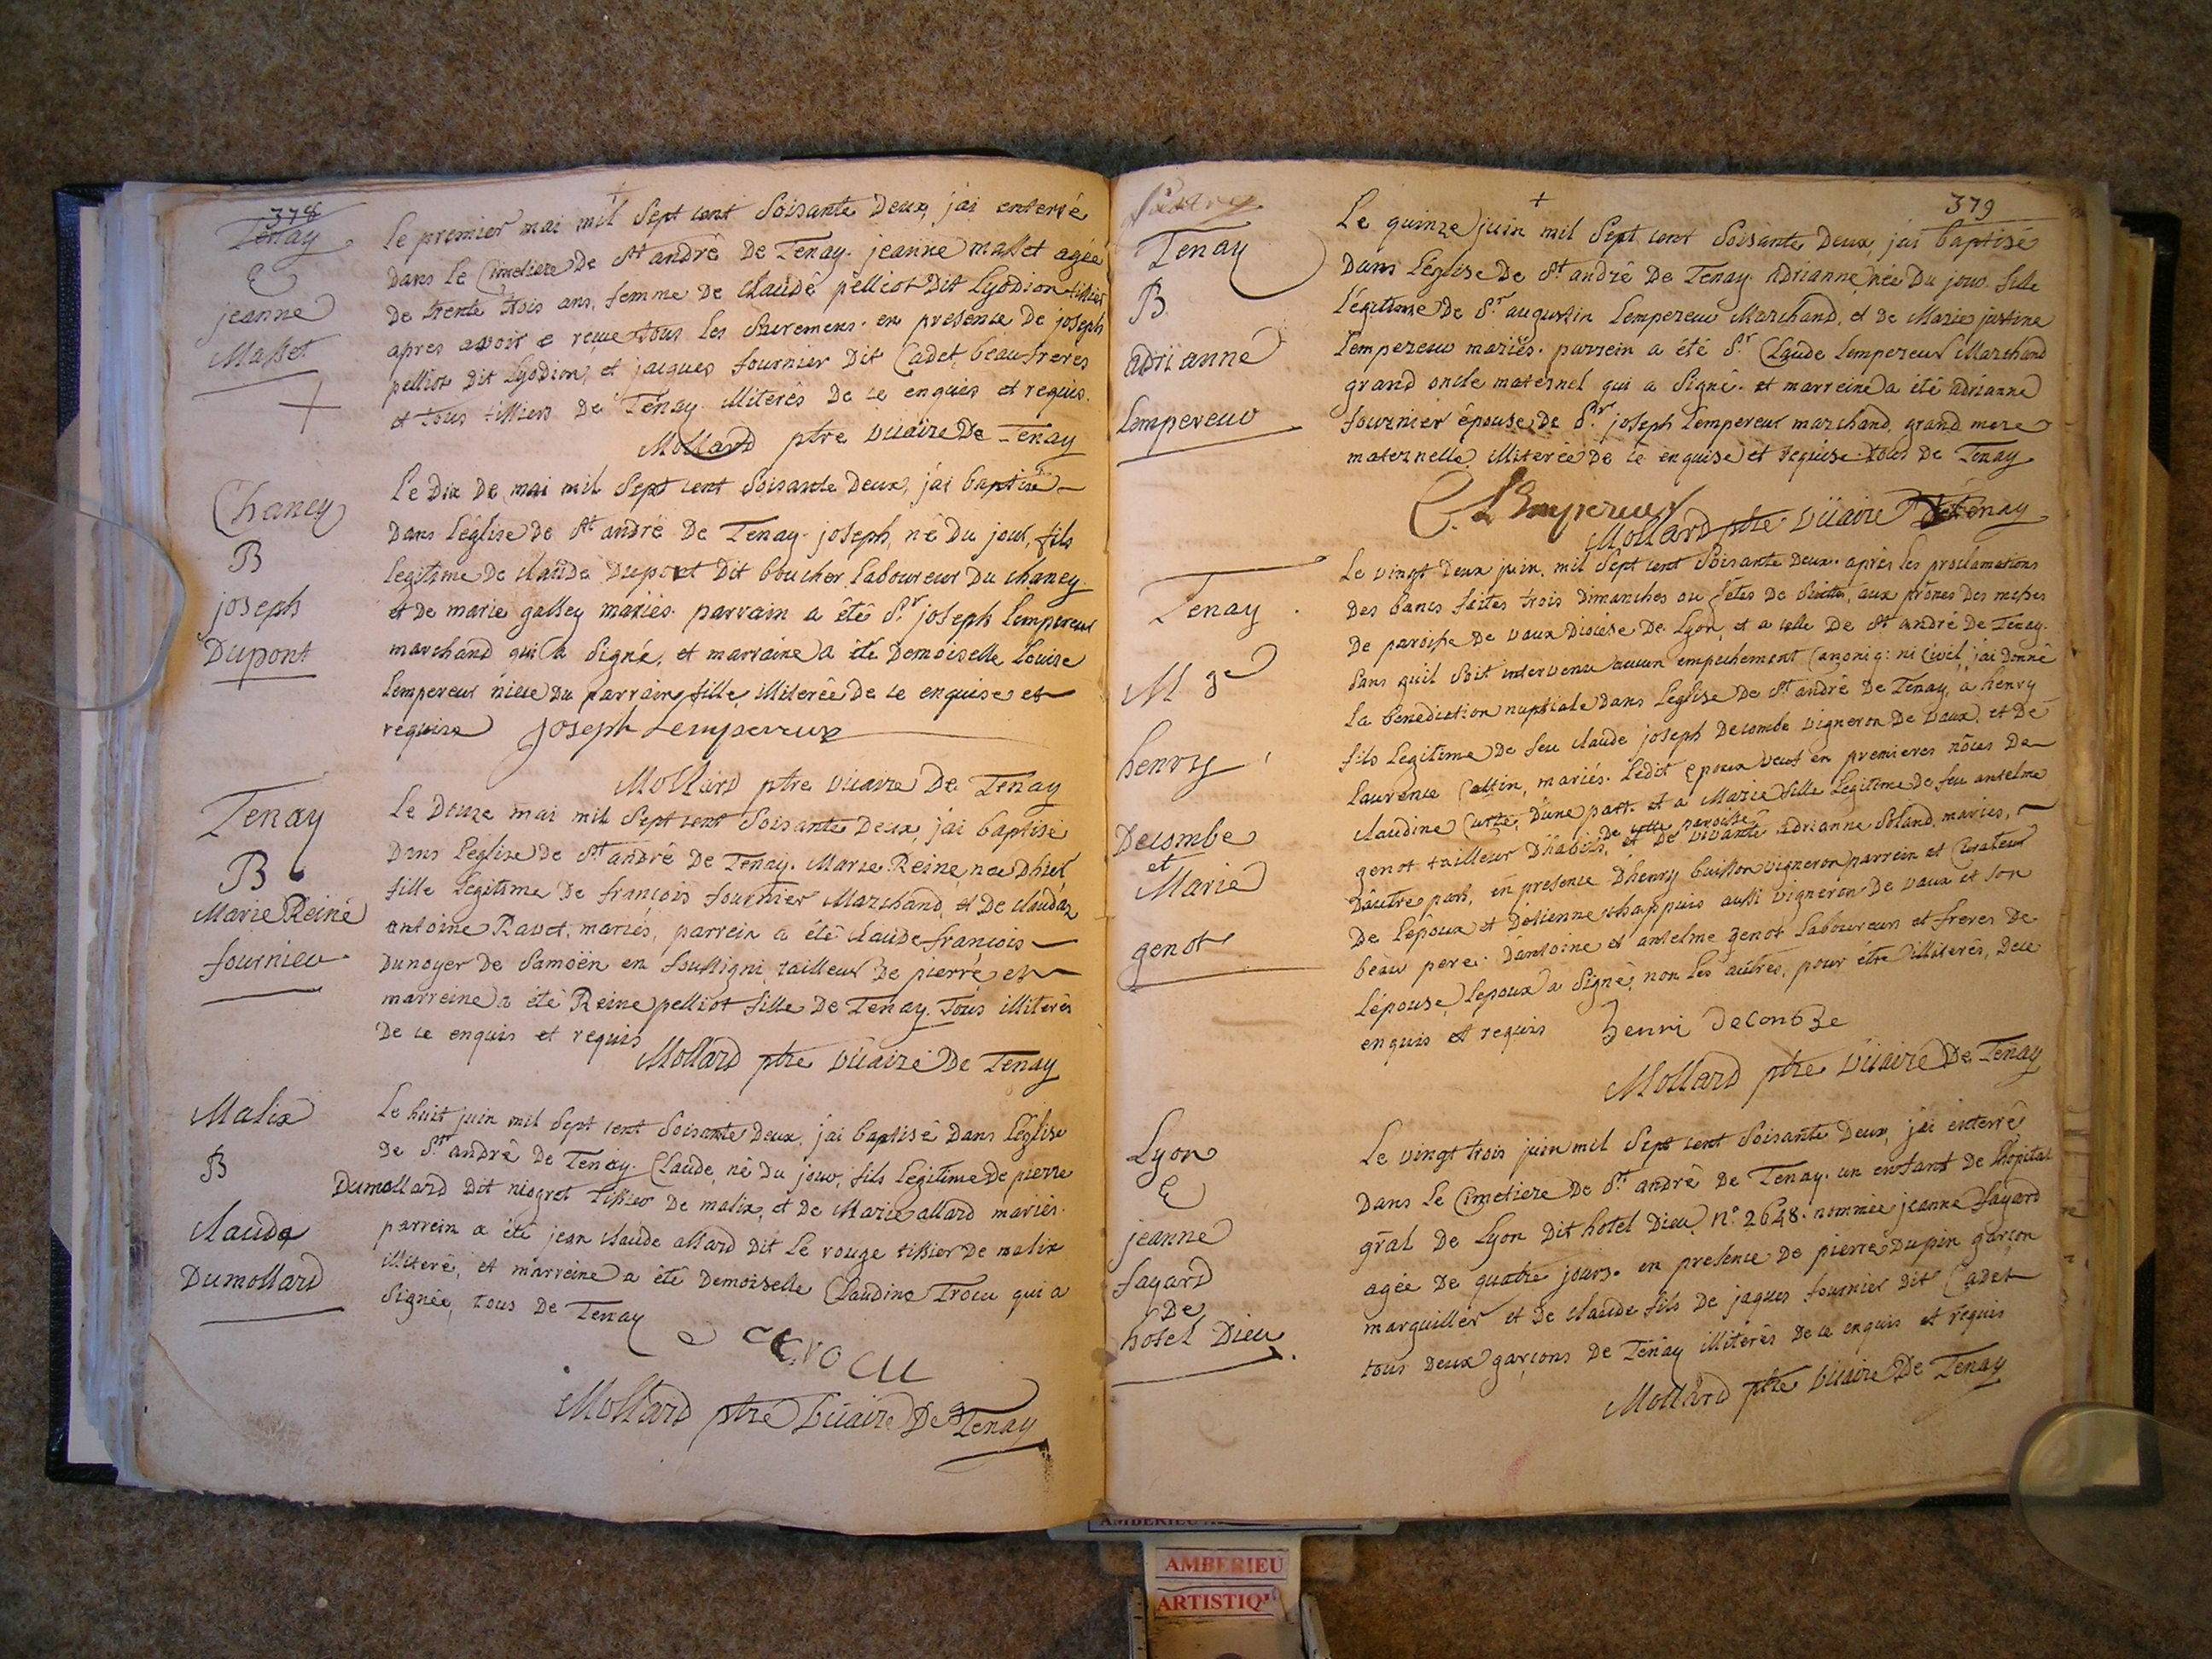 378
Tenay
E
jeanne
Masset
Le premier mai mil Sept cent Soisante Deux, j'ai enterré
Dans le Cimetiere De St andré De Tenay. jeanne masset agée
De trente trois ans, femme de Claude pelliot Dit Lyodion tissier
apres avoir e reçue tous les Sacremens. en presence de joseph
pelliot Dit Lyodion, et jacques fournier Dit Cadet, beaufreres
et tous tissiers De Tenay illiterés De ce enquis et requis.
Mollard ptre vicaire De Tenay
Chaney
B
joseph
Dupont
Le Dix De mai mil Sept cent Soisante Deux, j'ai baptisé
Dans l'église de St andré De Tenay. joseph, né Du jour, fils
legitime De claude Dupont Dit boucher laboureur Du chaney.
et de marie galley mariés. parrain a été Sr. joseph Lempereur
marchand qui a Signé, et marraine a été Demoiselle Louise
Lempereur niece Du parrain, fille, illiterée De ce enquise et
requise Joseph Lempereur
Mollard ptre vicaire De Tenay
Tenay
B
Marie Reine
fournier
Le Douze mai mil Sept cent Soisante Deux, j'ai baptisé
Dans l'église De St andré De Tenay. Marie Reine, nee D'hier,
fille legitime De françois fournier Marchand, et De claudaz
antoine Ravet, mariés, parrein a été claude françois
Dunoyer De Samoën en foussigni tailleur De pierre et
marreine a été Reine pelliot fille De Tenay. Tous illiterés
De ce enquis et requis
Mollard ptre vicaire De Tenay
Malix
B
claude
Dumollard
Le huit juin mil Sept cent Soisante Deux, j'ai baptisé Dans l'église
De St andré De Tenay. Claude, né Du jour, fils legitime De pierre
Dumollard Dit niogret tissier De malix, et De Marie allard mariés.
parrein a été jean claude allard Dit Le rouge tissier De malix
illiteré, et marreine a été Demoiselle Claudine Trocu qui a
Signée, tous De Tenay
C trocu
Mollard ptre vicaire De Tenay
379
Tenay
B
adrianne
Lempereur
Le quinze juin mil Sept cent Soisante Deux, j'ai baptisé
Dans l'église De St andré De Tenay. Adrianne, née Du jour, fille
légitime De Sr. augustin Lempereur Marchand, et de Marie justine
Lempereur mariés. parrein a été Sr. Claude Lempereur Marchand
grand oncle maternel qui a Signé. et marreine a été adrianne
fournier épouse De Sr. joseph Lempereur marchand, grand mere
maternelle illiterée De ce enquise et requise. tous De Tenay
C. L'Empereur
Mollard ptre vicaire De Tenay
Tenay
M ge
henry
Decombe
et
Marie
genot
Le vingt Deux juin, mil Sept cent Soisante Deux. après les proclamations
Des bancs faites trois Dimanches ou fêtes De Suitte, aux prônes Des messes
De paroisse De vaux Diocese De Lyon, et a celle De St andré De Tenay.
Sans qu'il Soit intervenu aucun empechement Canoniq: ni Civil, j'ai Donné
La benediction nuptiale Dans l'église De St andré De Tenay, a henry
fils legitime De feu claude joseph Decombe vigneron De vaux, et De
laurence Cattin, mariés. Ledit epoux veuf en premieres nôces De
claudine Curte, D'une part. et a Marie fille Legitime De feu anselme
De cette paroisse
genot tailleur D'habits, et De vivante adrianne Soland, mariés,
D'autre part, en presence D'henry buisson vigneron parrein et Curateur
De l'époux et D'etienne chappuis aussi vigneron De vaux et Son
beau pere. D'antoine et anselme genot laboureurs et freres De
l'épouse, l'epoux a Signé, non les autres, pour être illiterés, De ce
enquis et requis henri Decombe
Mollard ptre vicaire De Tenay
Lyon
E
jeanne
fayard
De
hotel Dieu
Le vingt trois juin mil Sept cent Soisante Deux, j'ai enterré
Dans le Cimetiere De St. andré De Tenay. un enfant de l'hopital
grãl De Lyon Dit hotel Dieu, n°. 2648. nommée jeanne fayard
agée De quatre jours. en presence De pierre Dupin garçon
marguiller et De claude fils De jaques fournier Dit Cadet
tous Deux garçons De Tenay illiterés De ce enquis et requis
Mollard ptre vicaire De Tenay
AMBERIEU
ARTISTIQU